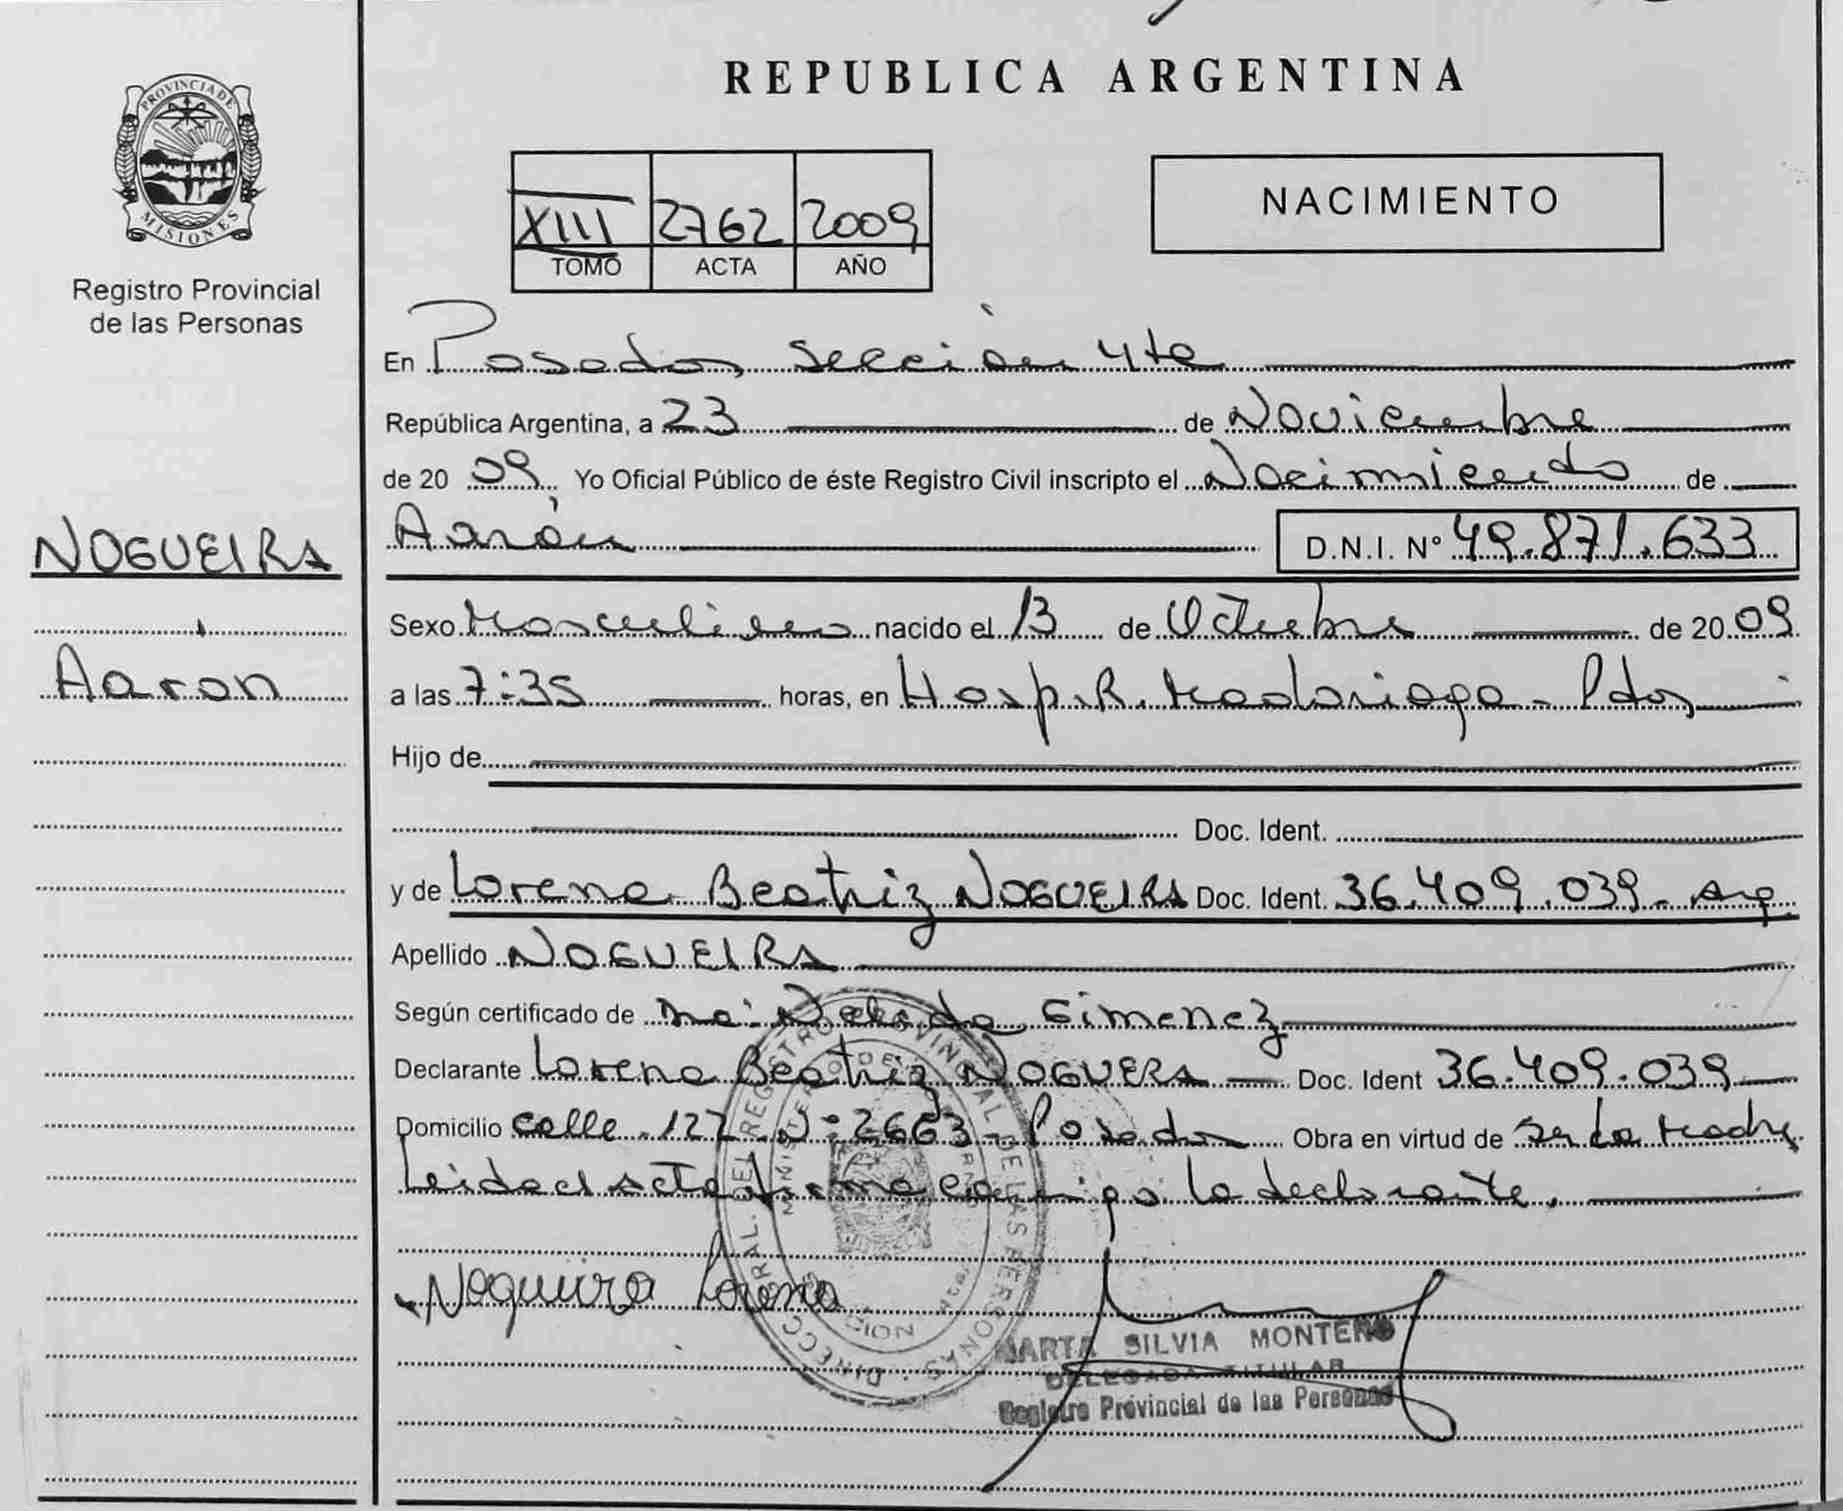 PROVINCIA DE
MISIONES
Registro Provincial
de las Personas
NOGUEIRA
Aarón
REPUBLICA ARGENTINA
XIII 2762 2009
TOMO ACTA AÑO
NACIMIENTO
En Posadas, Sección 4ta
República Argentina, a 23 de Noviembre
de 2009, Yo Oficial Público de éste Registro Civil inscripto el Nacimiento de
Aarón D.N.I. Nº 49.871.633
Sexo Masculino nacido el 13 de Octubre de 2009
a las 7:35 horas, en Hosp. R. Madariaga - Pdas
Hijo de
Doc. Ident.
y de Lorena Beatriz NOGUEIRA Doc. Ident. 36.409.039 - Arg.
Apellido NOGUEIRA
Según certificado de Gimenez
Declarante Lorena Beatriz NOGUERA Doc. Ident 36.409.039
Domicilio calle 127 Nº 2663 - Posadas Obra en virtud de ser la madre
Leida el acta firma conmigo la declarante.
Nogueira Lorena
MARTA SILVIA MONTERO
DELEGADA TITULAR
Registro Provincial de las Personas